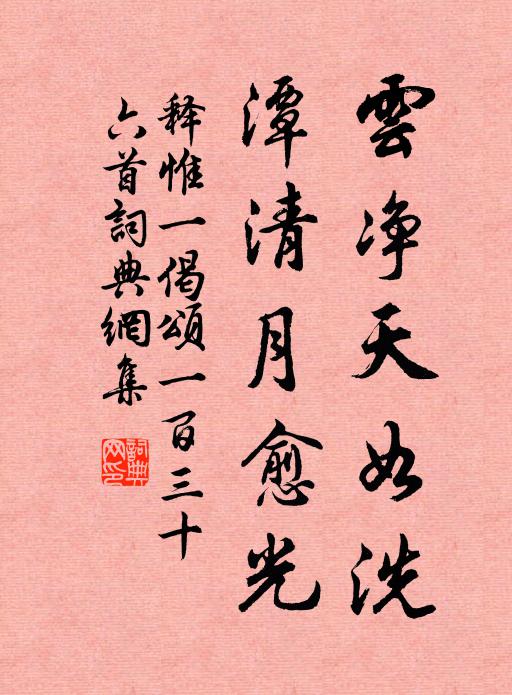 雲净天如洗
潭清月愈光
释惟一偈頌一百三十
六首詞典網集
詞典
网印